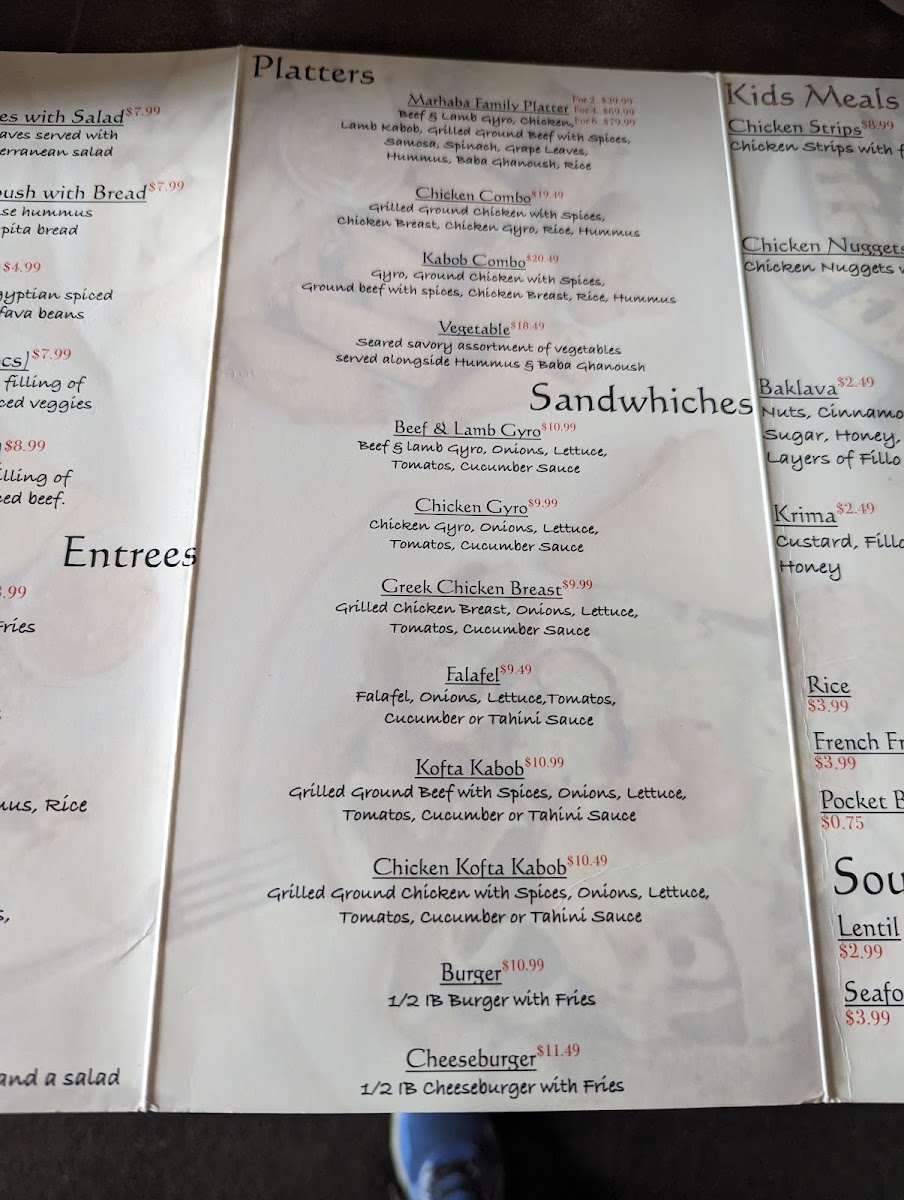 es with Salad $7.99
aves served with
erranean salad
oush with Bread $7.99
se hummus
pita bread
$4.99
gyptian spiced
fava beans
cs) $7.99
filling of
ced veggies
$8.99
illing of
ced beef.
Entrees
.99
Fries
mus, Rice
s,
and a salad
Platters
Marhaba Family Platter For 2 $39.99
For 4 $69.99
For 6 $79.99
Beef & Lamb Gyro, Chicken,
Lamb Kabob, Grilled Ground Beef with Spices,
Samosa, Spinach, Grape Leaves,
Hummus, Baba Ghanoush, Rice
Chicken Combo $19.49
Grilled Ground Chicken with Spices,
Chicken Breast, Chicken Gyro, Rice, Hummus
Kabob Combo $20.49
Gyro, Ground Chicken with Spices,
Ground beef with spices, Chicken Breast, Rice, Hummus
Vegetable $18.49
Seared savory assortment of vegetables
served alongside Hummus & Baba Ghanoush
Sandwhiches
Beef & Lamb Gyro $10.99
Beef & lamb Gyro, Onions, Lettuce,
Tomatos, Cucumber Sauce
Chicken Gyro $9.99
Chicken Gyro, Onions, Lettuce,
Tomatos, Cucumber Sauce
Greek Chicken Breast $9.99
Grilled Chicken Breast, Onions, Lettuce,
Tomatos, Cucumber Sauce
Falafel $9.49
Falafel, Onions, Lettuce,Tomatos,
Cucumber or Tahini Sauce
Kofta Kabob $10.99
Grilled Ground Beef with Spices, Onions, Lettuce,
Tomatos, Cucumber or Tahini Sauce
Chicken Kofta Kabob $10.49
Grilled Ground Chicken with Spices, Onions, Lettuce,
Tomatos, Cucumber or Tahini Sauce
Burger $10.99
1/2 lB Burger with Fries
Cheeseburger $11.49
1/2 lB Cheeseburger with Fries
Kids Meals
Chicken Strips $8.99
Chicken Strips with f
Chicken Nuggets
Chicken Nuggets w
Baklava $2.49
Nuts, Cinnamo
Sugar, Honey,
Layers of Fillo
Krima $2.49
Custard, Fillo
Honey
Rice
$3.99
French Fr
$3.99
Pocket B
$0.75
Sou
Lentil
$2.99
Seafo
$3.99